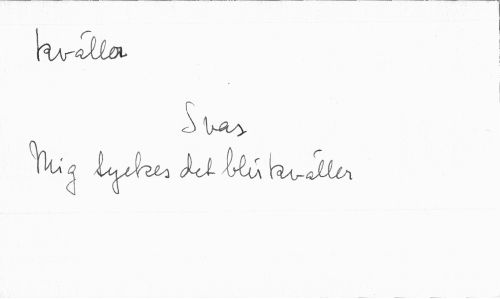 kvälla
Svas
Mig tyckes det blir kväller